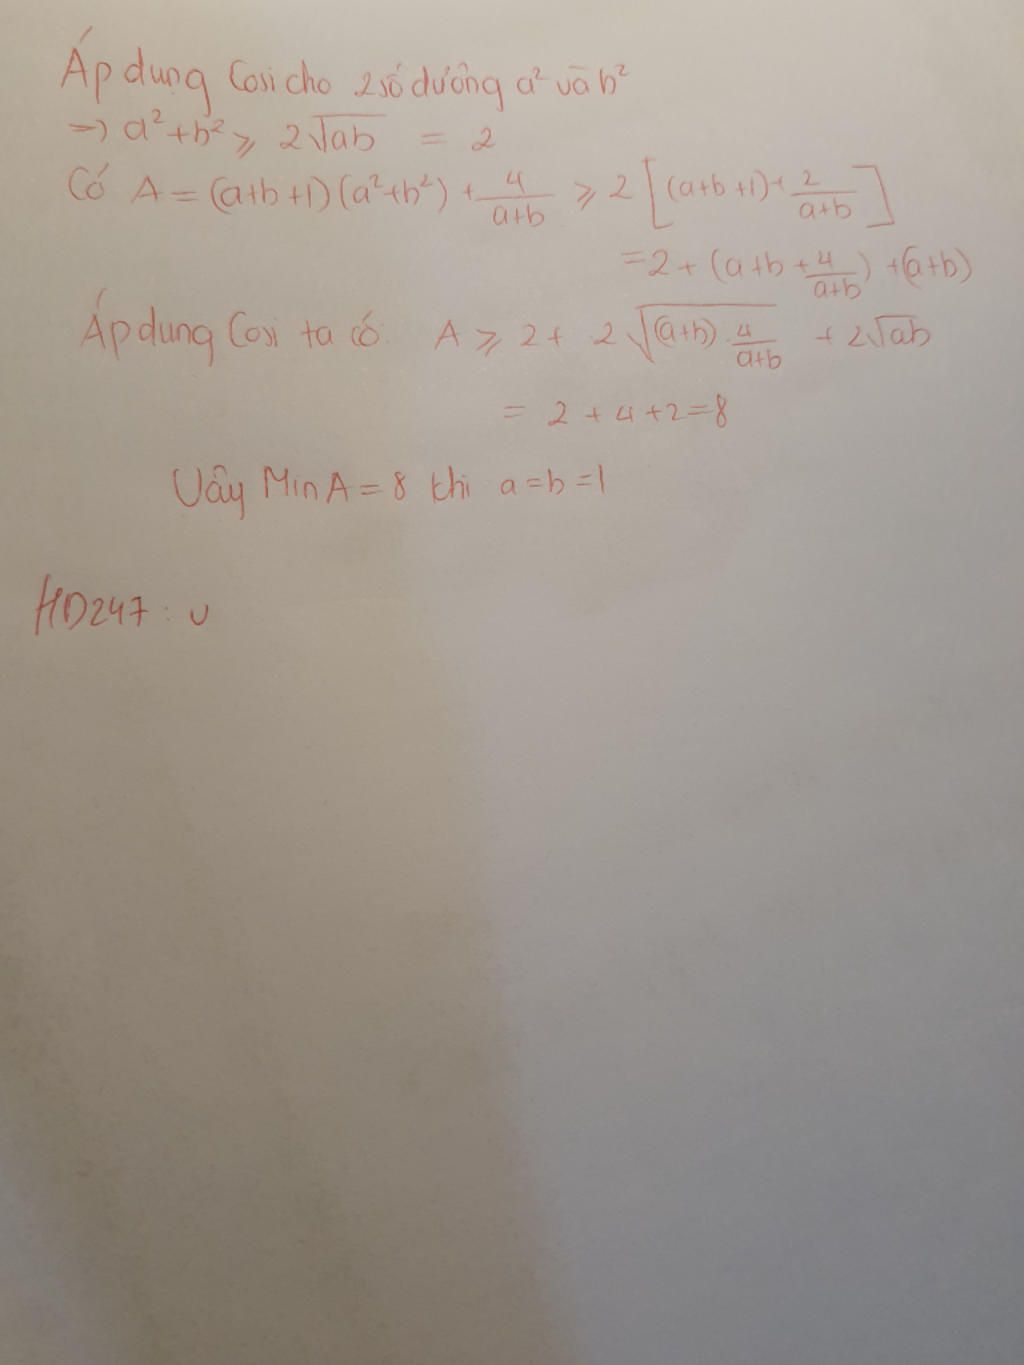 Áp dụng Cosi cho 2 số dương a² và b²
=> a² + b² ⩾ 2√ab = 2
Có A = (a+b+1)(a²+b²) + 4/(a+b) ⩾ 2[(a+b+1) + 2/(a+b)]
= 2 + (a+b + 4/(a+b)) + (a+b)
Áp dung Cosi ta có: A ⩾ 2 + 2√((a+b).4/(a+b)) + 2√ab
= 2 + 4 + 2 = 8
Vậy Min A = 8 khi a = b = 1
HD247 : u